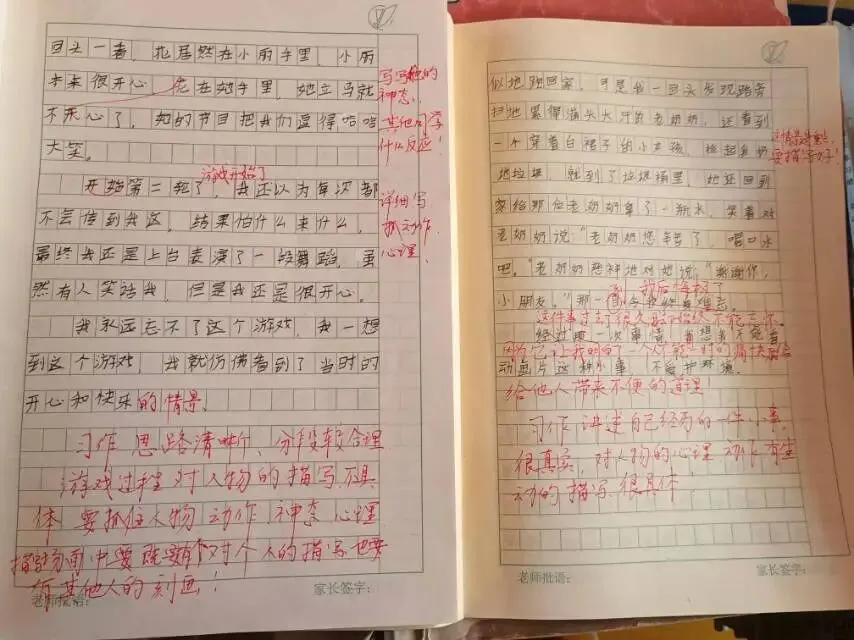 回头一看，花居然在小丽手里，小丽
本来很开心，花在她手里，她立马就
不开心了，她的节目把我们逗得哈哈
大笑。
写写她的
神态，
其他同学
什么反应！
游戏开始了
开始第二轮了，我还以为每次都
不会传到我这，结果怕什么来什么，
最终我还是上台表演了一段舞蹈，虽
然有人笑话我，但是我还是很开心。
详细写
抓动作
心理。
我永远忘不了这个游戏，我一想
到这个游戏，我就仿佛看到了当时的
开心和快乐的情景。
习作思路清晰、分段较合理
游戏过程对人物的描写不具
体 要抓住人物动作 神态 心理
描写场面中要既有对个人的描写也要
有其他人的刻画！
老师批语：
家长签字：
似地跑回家，可是我一回头发现路旁
扫地累得满头大汗的老奶奶，还看到
一个穿着白裙子的小女孩，捡起
地垃圾，就到了垃圾桶里，她还回到
家给那位老奶奶拿了一瓶水，笑着对
老奶奶说：“老奶奶您辛苦了，喝口水
吧。”老奶奶慈祥地对她说：“谢谢你，
小朋友。”那一
要描写好！
这件事过去了很久 始终不能忘怀。
经过这一次事情，我
因为它让我明白了一个人不能一时
动 片这种小事，不爱护环境。
给他人带来不便的道理！
习作讲述自己经历的一件小事，
很真实，对人物的心理 动作有生
动的描写很具体
老师批语：
家长签字：